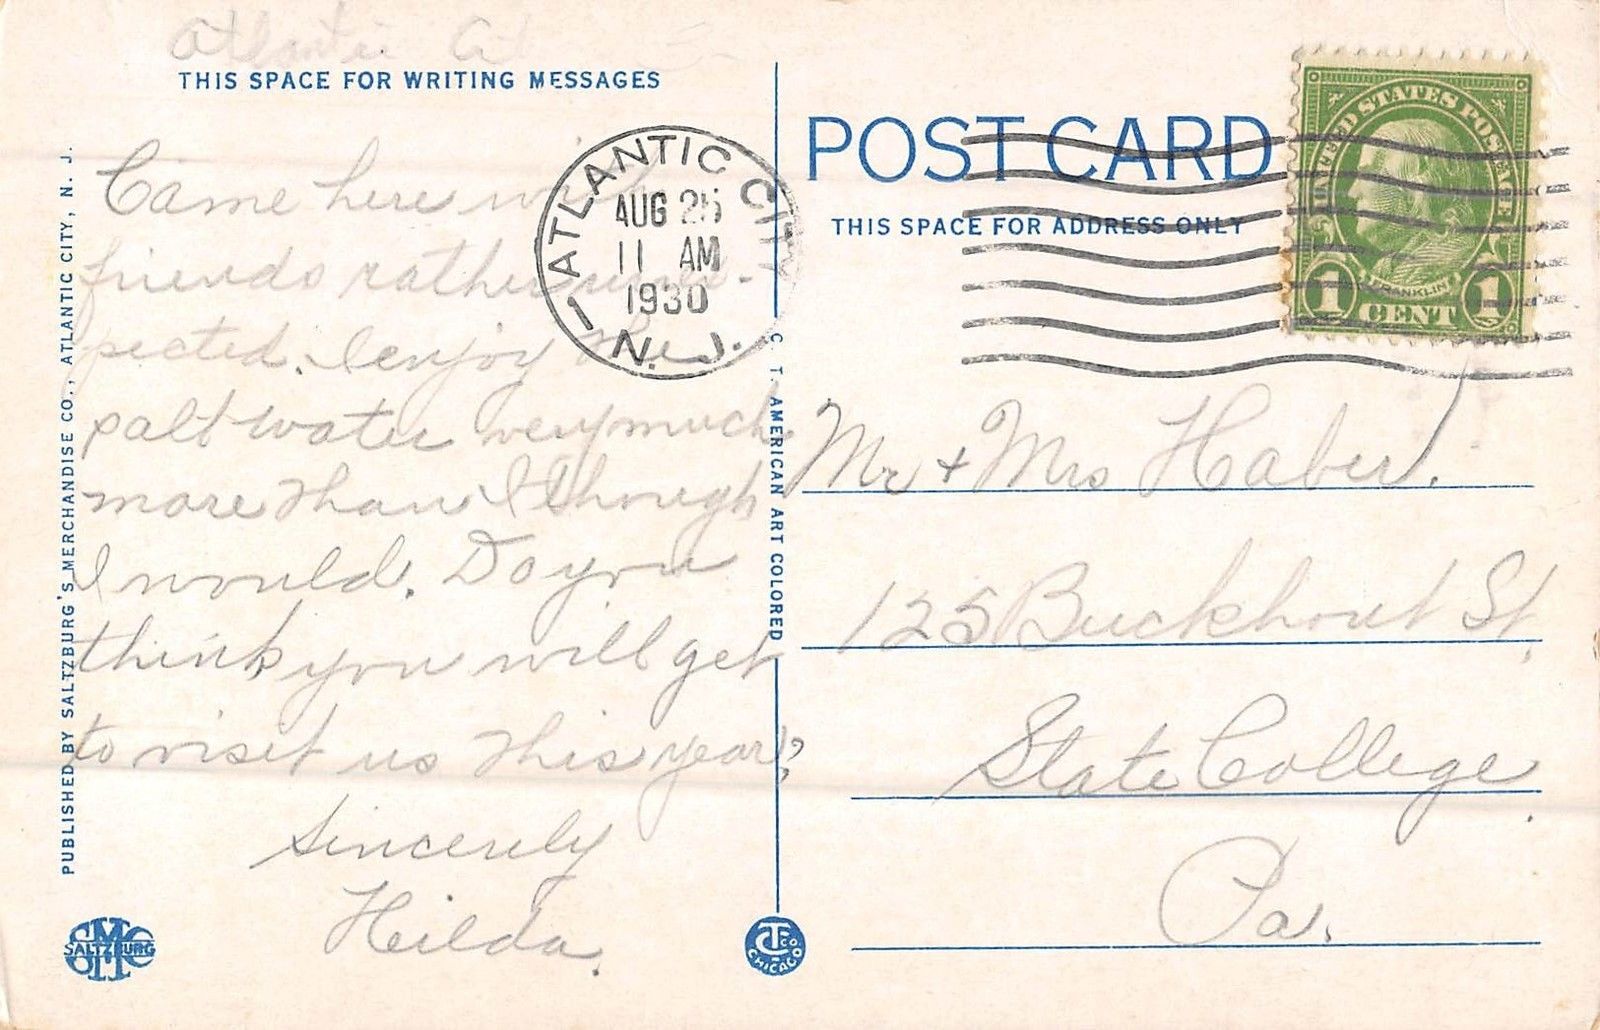 Atlantic
THIS SPACE FOR WRITING MESSAGES
Came here with
friends rather unex-
pected. I enjoy the
salt water very much
more than I though
I would. Do you
think you will get
to visit us this year?
Sincerely
Hilda.
PUBLISHED BY SALTZBURG'S MERCHANDISE CO., ATLANTIC CITY, N. J.
SMC
SALTZBURG
ATLANTIC CITY
AUG 25
11 AM
1930
N.J.
C. T. AMERICAN ART COLORED
CT CO
CHICAGO
POST CARD
THIS SPACE FOR ADDRESS ONLY
UNITED STATES POSTAGE
FRANKLIN
1 CENT 1
Mr + Mrs Haber.
125 Buckhout St,
State College.
Pa.